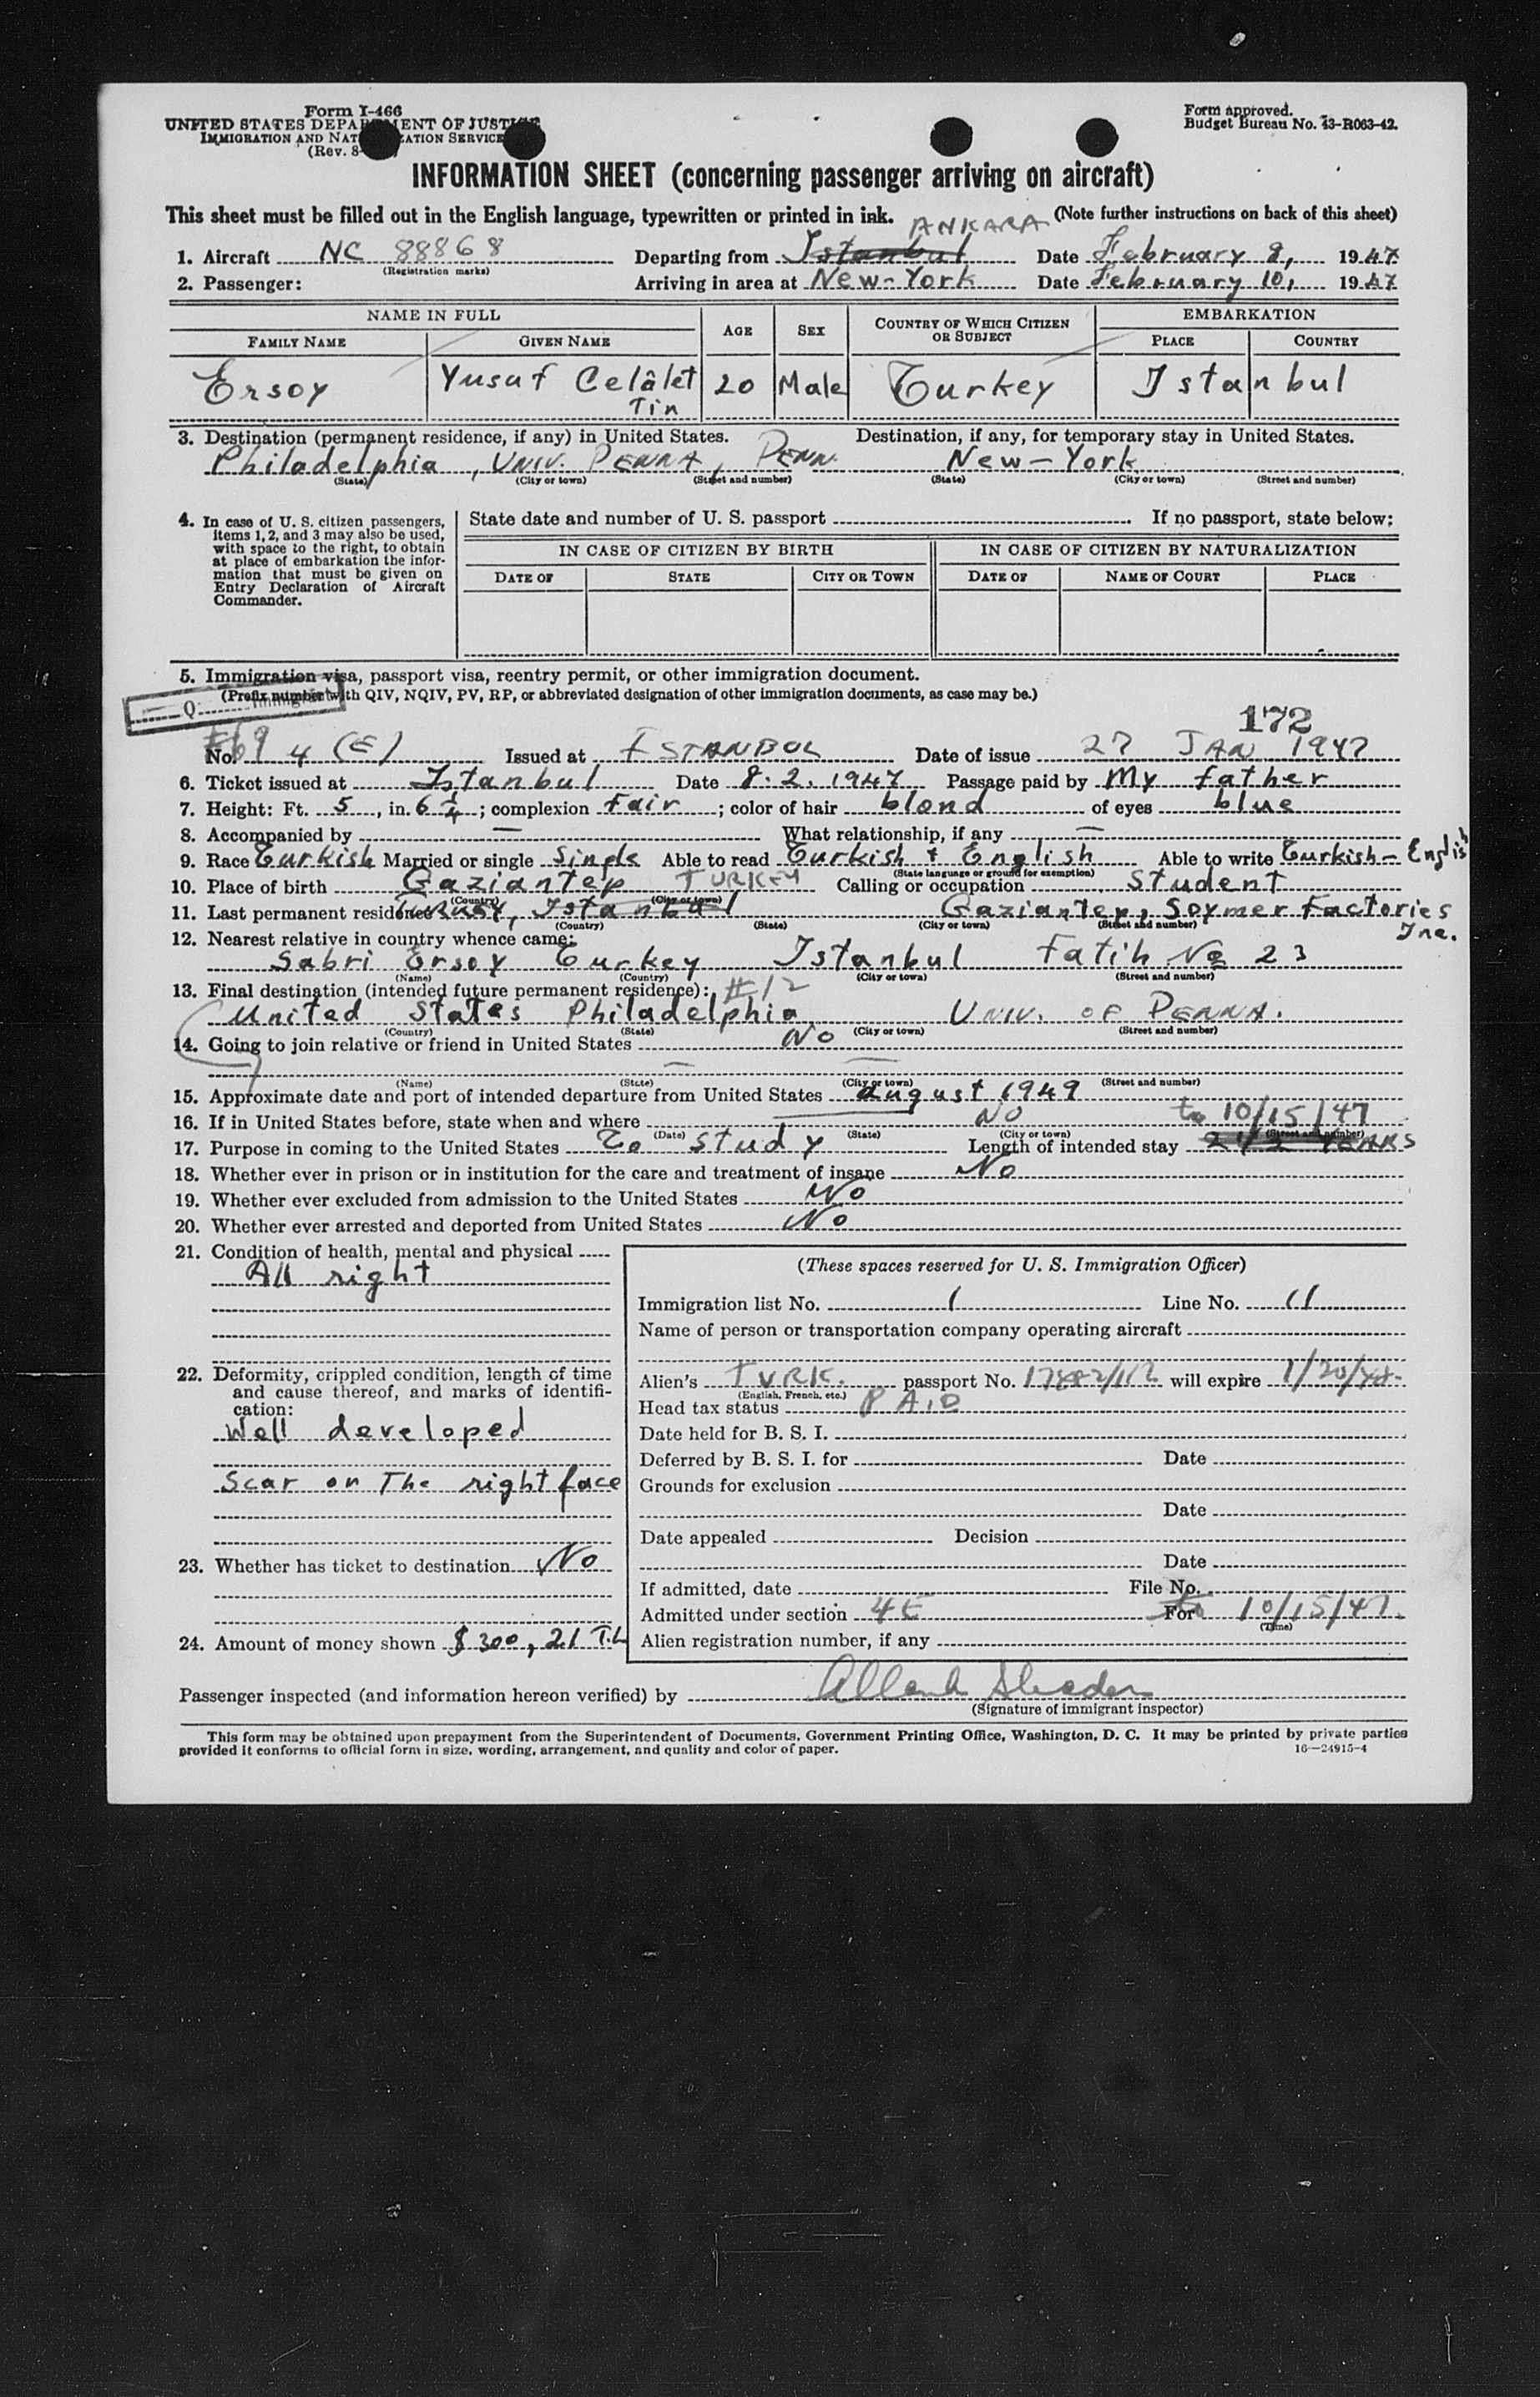 Form I-466
UNITED STATES DEPARTMENT OF JUSTICE
IMMIGRATION AND NATURALIZATION SERVICE
(Rev. 8-
Form approved.
Budget Bureau No. 43-R063-42.
INFORMATION SHEET (concerning passenger arriving on aircraft)
This sheet must be filled out in the English language, typewritten or printed in ink. (Note further instructions on back of this sheet)
ANKARA
1. Aircraft NC 88868 Departing from Istanbul Date February 8, 1947
(Registration marks)
2. Passenger: Arriving in area at New-York Date February 10, 1947
NAME IN FULL AGE SEX COUNTRY OF WHICH CITIZEN OR SUBJECT EMBARKATION
FAMILY NAME GIVEN NAME PLACE COUNTRY
Ersoy Yusuf Celâlet 20 Male Turkey Istanbul
Tin
3. Destination (permanent residence, if any) in United States. Destination, if any, for temporary stay in United States.
Philadelphia, UNIV. PENNA, PENN. New-York
(State) (City or town) (Street and number) (State) (City or town) (Street and number)
4. In case of U. S. citizen passengers, items 1, 2, and 3 may also be used, with space to the right, to obtain at place of embarkation the information that must be given on Entry Declaration of Aircraft Commander.
State date and number of U. S. passport If no passport, state below:
IN CASE OF CITIZEN BY BIRTH IN CASE OF CITIZEN BY NATURALIZATION
DATE OF STATE CITY OR TOWN DATE OF NAME OF COURT PLACE
5. Immigration visa, passport visa, reentry permit, or other immigration document.
(Prefix number with QIV, NQIV, PV, RP, or abbreviated designation of other immigration documents, as case may be.)
Q
172
No. 4 (E) Issued at ISTANBUL Date of issue 27 JAN 1947
6. Ticket issued at Istanbul Date 8.2.1947 Passage paid by My father
7. Height: Ft. 5, in. 6 1/4; complexion Fair; color of hair blond of eyes blue
8. Accompanied by — What relationship, if any —
9. Race Turkish Married or single Single Able to read Turkish + English Able to write Turkish - English
(State language or ground for exemption)
10. Place of birth Gaziantep TURKEY Calling or occupation student
(Country) (City or town)
11. Last permanent residence Turkey, Istanbul Gaziantep, Soymer Factories
Inc.
(Country) (State) (City or town) (Street and number)
12. Nearest relative in country whence came:
Sabri Ersoy Turkey Istanbul Fatih No 23
(Name) (Country) (City or town) (Street and number)
13. Final destination (intended future permanent residence): #12
United States Philadelphia UNIV. OF PENNA.
(Country) (State) (City or town) (Street and number)
14. Going to join relative or friend in United States No
— —
(Name) (State) (City or town) (Street and number)
15. Approximate date and port of intended departure from United States august 1949
16. If in United States before, state when and where NO to 10/15/47
(Date) (State) (City or town) (Street and number)
17. Purpose in coming to the United States To study Length of intended stay 2 1/2 YEARS
18. Whether ever in prison or in institution for the care and treatment of insane No
19. Whether ever excluded from admission to the United States No
20. Whether ever arrested and deported from United States No
21. Condition of health, mental and physical
All right
22. Deformity, crippled condition, length of time and cause thereof, and marks of identification:
Well developed
Scar on The right face
23. Whether has ticket to destination No
24. Amount of money shown $ 300, 21 T.L
(These spaces reserved for U. S. Immigration Officer)
Immigration list No. 1 Line No. 11
Name of person or transportation company operating aircraft
Alien's TURK. passport No. will expire 1/20/48
(English, French, etc.)
Head tax status PAID
Date held for B. S. I.
Deferred by B. S. I. for Date
Grounds for exclusion
Date
Date appealed Decision
Date
If admitted, date File No.
Admitted under section 4E For to 10/15/47
(Time)
Alien registration number, if any
Passenger inspected (and information hereon verified) by
(Signature of immigrant inspector)
This form may be obtained upon prepayment from the Superintendent of Documents, Government Printing Office, Washington, D. C. It may be printed by private parties
provided it conforms to official form in size, wording, arrangement, and quality and color of paper. 16—24915-4